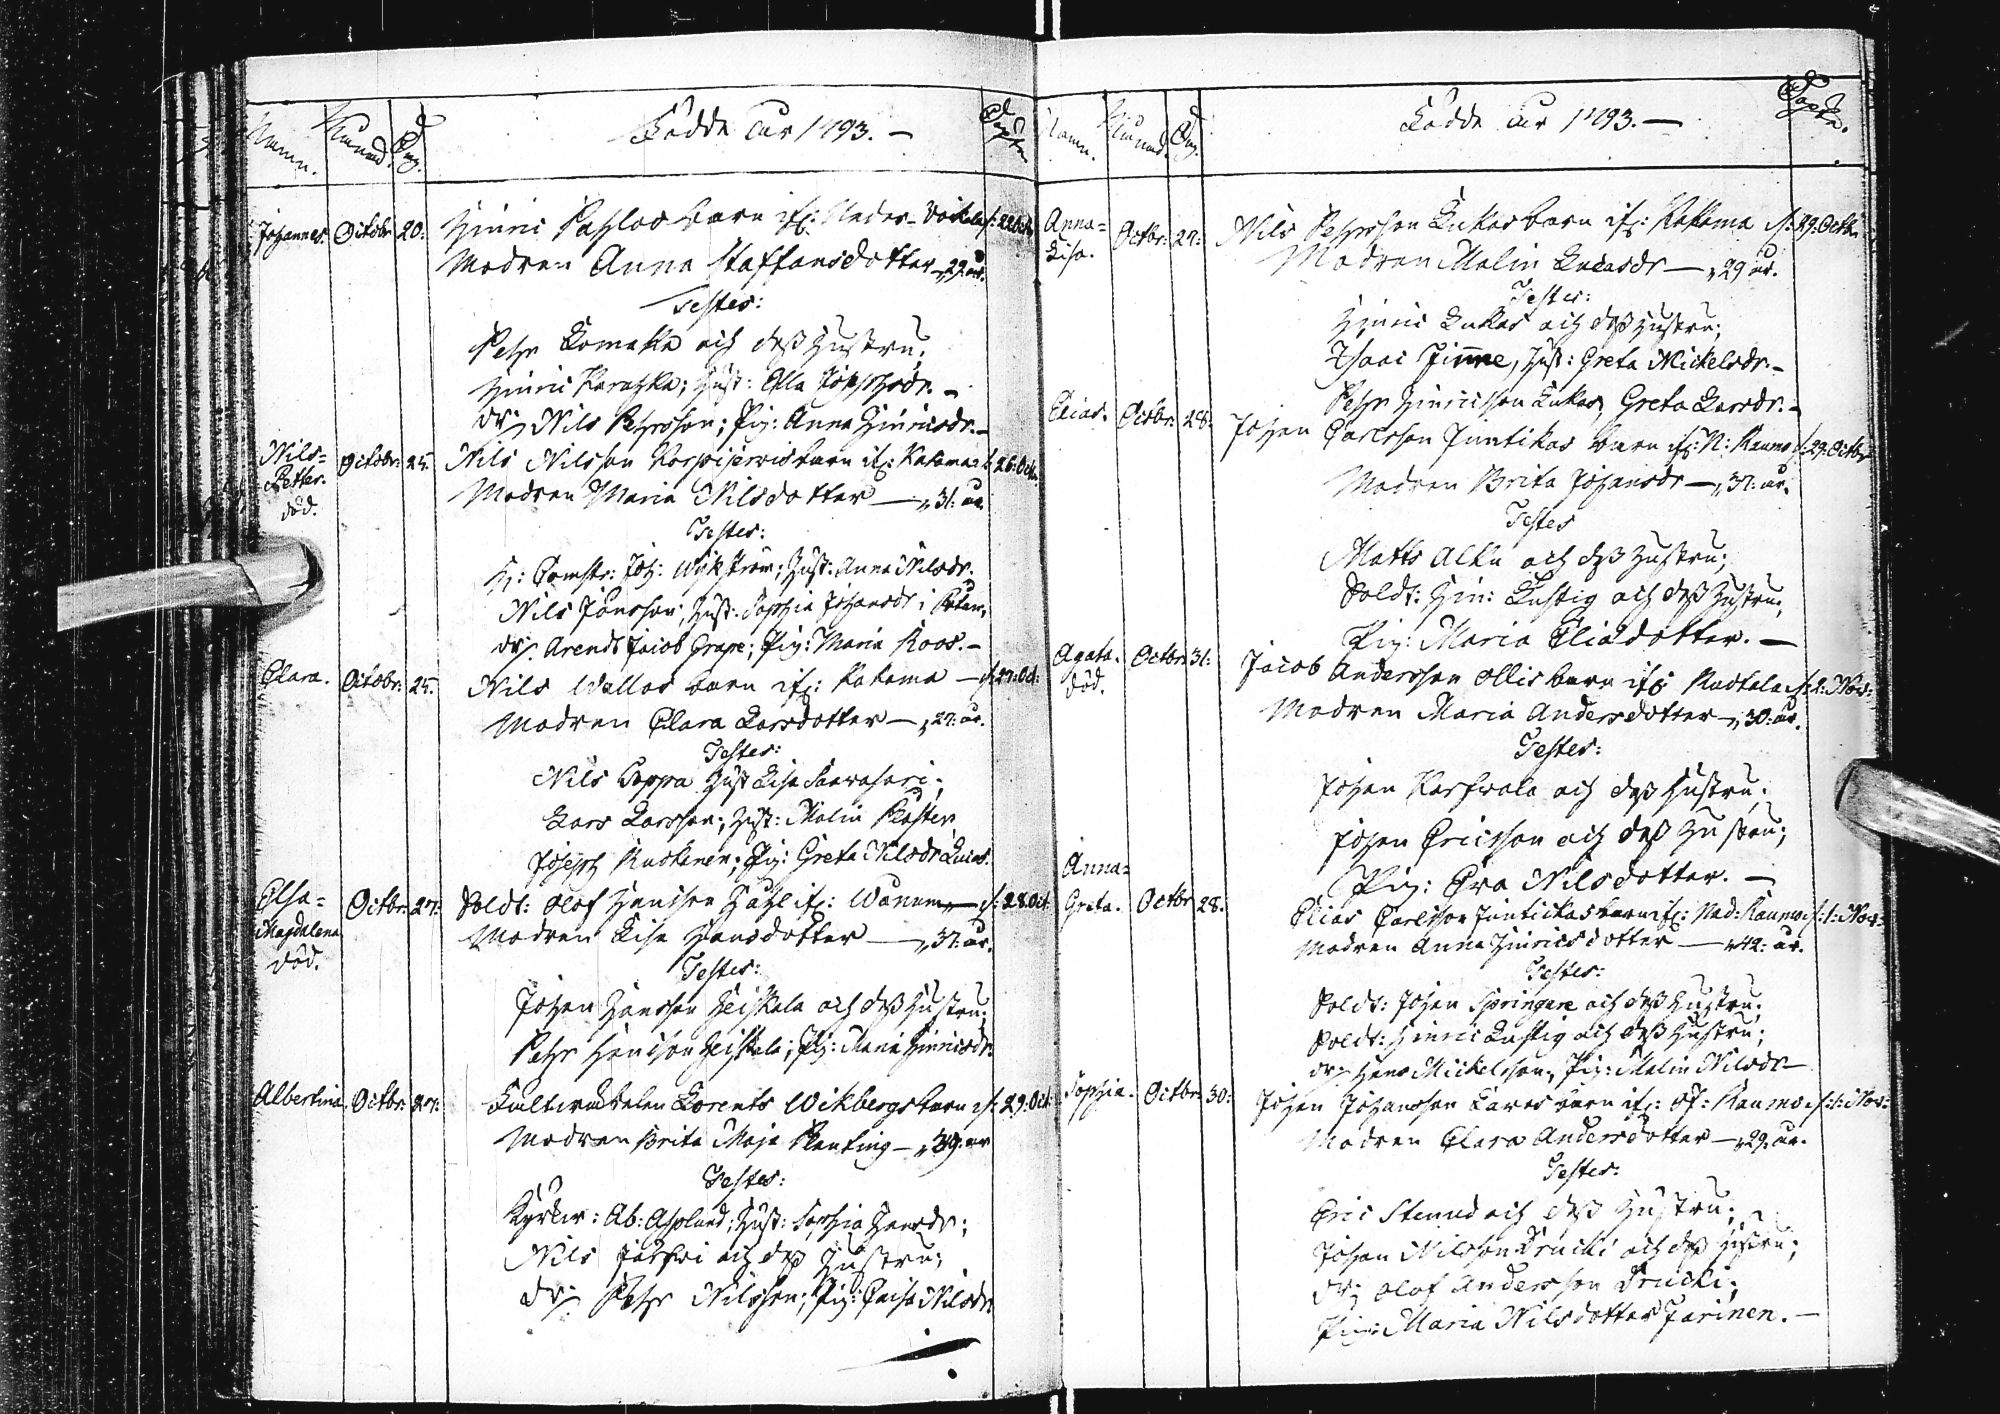 Namn.
Månad.
Dag.
Födde Åur 1793. —
Döpte.
Johannes. Octobr: 20: Hinric Pahlos barn if: Neder-Woikala f: 22 Octbr
Modren Anna Staffansdotter — 29 år.
Testes:
Pehr Lomakka och deß Hustru;
Hinric; Hust: Ella Josephsdr. —
dr: Nils Pehrsson; Pig: Anna Hinricsdr. —
Nils=
Petter.
död.
Octobr: 25. Nils Nilsson Korpijerwis barn if: Kakama f: 26: Oct.
Modren Maria Nilsdotter — 31: år.
Testes:
H: Comstr: Joh: Wijkström; Hust: Anna Nilsdr.
Nils Jönsson; Hust: Sophia Johansdr i
dr: Arendt Jacob Grape; Pig: Maria Roos. —
Clara. Octobr: 25. Nils Wallos barn if: Kakama — f: 27: Oct:
Modren Clara Larsdotter — 27: år.
Testes:
Nils Poppa Hust Lisa
Lars Larsson; Hust: Malin
Joseph Ruokanen; Pig: Greta Nilsdr Lucas.
Elsa=
Magdalena
död.
Octbr: 27: Soldt: Olof Hansson if: — f: 28 Oct
Modren Lisa Hansdotter — 37: år.
Testes:
Johan Hansson Heiskala och deß Hustru;
Pehr Hansson Heiskala; Pig: Maria Hinricsdr
Albertina. Octbr: 27: Lorents Wikbergs barn f: 29: Oct
Modren Brita Maja Planting — 39: år
Testes:
Ab: Asplund; Hust: Sophia Hansdr;
Nils och deß Hustru;
dr: Pehr Nilsson; Pig: Caisa Nilsdr
Namn.
Månad.
Dag.
Födde Åur 1793. —
Döpte.
Anna=
Lisa.
Octbr: 27: Nils Pehrsson Lukas barn if: Kakama f: 29: Octb.
Modren Malin Lucasdr — 29 år.
Testes:
Hinric Lukas och deß Hustru;
Isaac Jinne, Hust: Greta Mickelsdr. —
Pehr Hinricsson Lukas, Greta Larsdr. —
Elias. Octbr: 28: Johan Carlsson Juntikas barn if: N: Raumo f: 29: Octbr
Modren Brita Johansdr — 37: år.
Testes
Matts Alku och deß Hustru;
Soldt: Hin: Lustig och deß Hustru;
Pig: Maria Eliædotter. —
Agata.
död.
Octbr: 31: Jacob Andersson Ollis barn if: f: 2: Nov:
Modren Maria Andersdotter — 30: år.
Testes:
Johan och deß Hustru;
Johan Ericsson och deß Hustru;
Pig: Eva Nilsdotter. —
Anna=
Greta.
Octbr 28: Elias Carlsson Juntickas barn if: Ned: Raumo f: 1: Nov:
Modren Anna Hinricsdotter — 42: år.
Testes:
Soldt: Johan Springare och deß Hustru;
Soldt: Hinric Lustig och deß Hustru;
dr: Hans Mickelsson, Pig: Malin Nilsdr —
Sophia. Octbr: 30: Johan Johansson barn if: Öf: Raumo f: 1: Nov:
Modren Clara Andersdotter — 29: år.
Testes:
Eric och deß Hustru;
Johan Nilsson Drucki och deß Hustru;
dr: Olof Andersson Drucki;
Pig: Maria Nilsdotter Jarinen. —